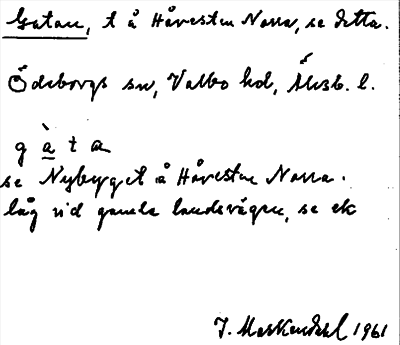 Gatan, t å Håvesten Norra, se detta.
Ödeborgs sn, Valbo hd, Älvsb. l.
g à t a
se Nyberget å Håvesten Norra.
låg vid gamla landsvägen, se ek
J. 1961